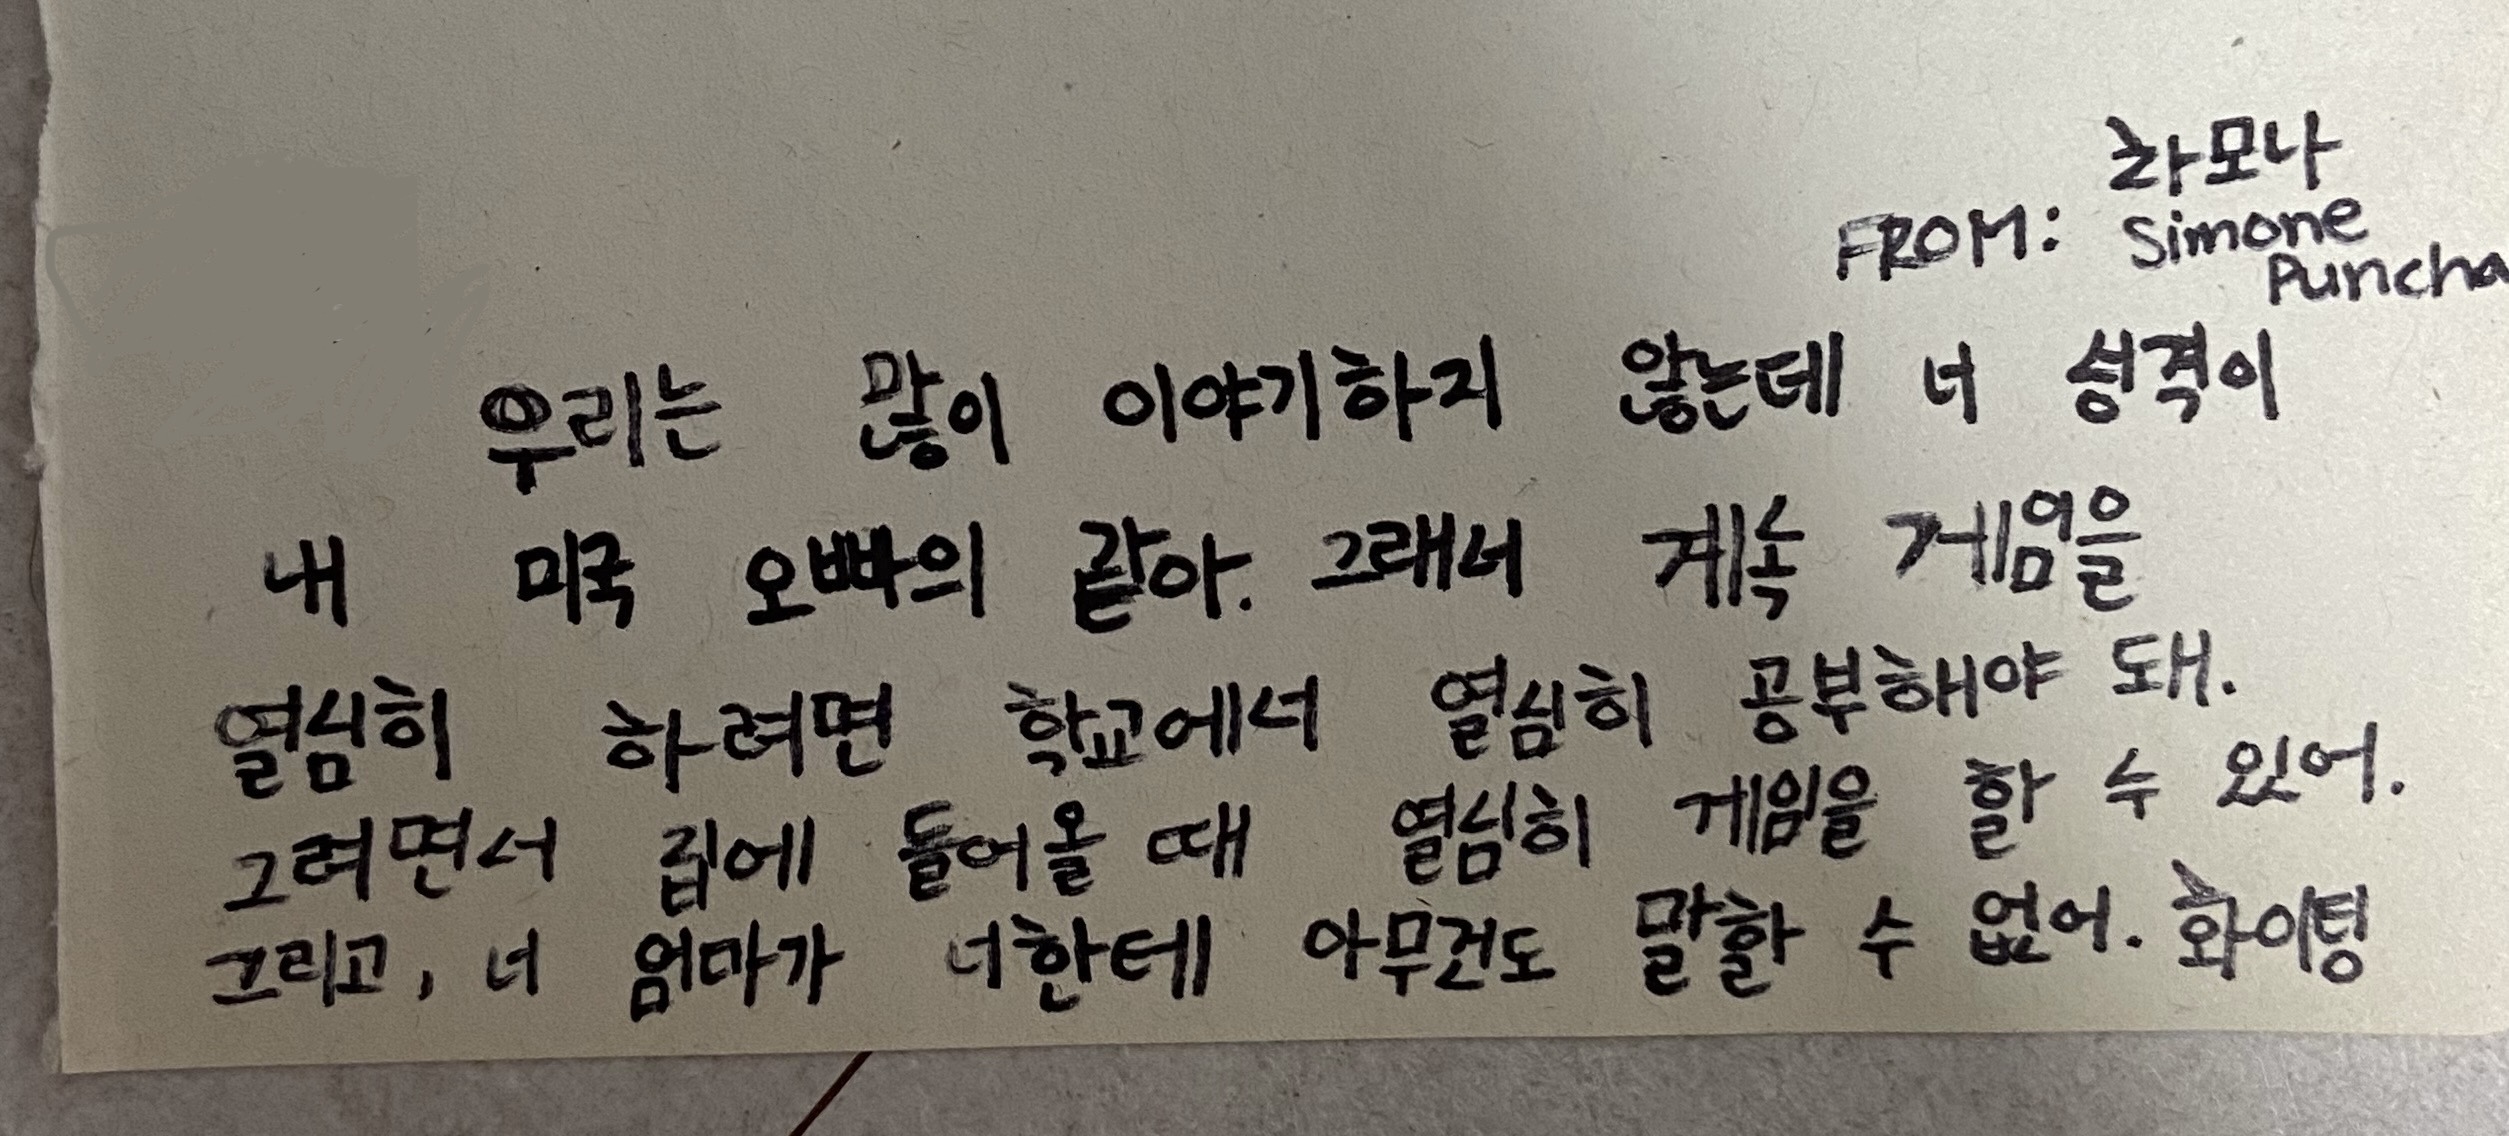 차모나
FROM: Simone
Puncha
우리는 많이 이야기하지 않는데 너 성격이
내 미국 오빠의 같아. 그래서 계속 게임을
열심히 하려면 학교에서 열심히 공부해야 돼.
그려면서 집에 들어올 때 열심히 게임을 할 수 있어.
그리고, 너 엄마가 너한테 아무건도 말할 수 없어. 화이팅